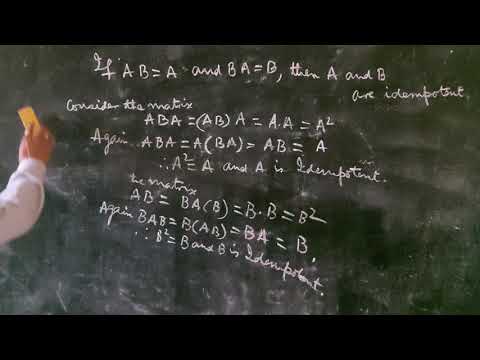 If AB = A and BA = B, then A and B
are idempotent.
Consider the matrix
ABA = (AB) A = A.A = A²
Again ABA = A(BA) = AB = A
∴ A² = A and A is Idempotent.
the matrix
AB = BA(B) = B.B = B²
Again BAB = B(AB) = BA = B.
∴ B² = B and B is Idempotent.